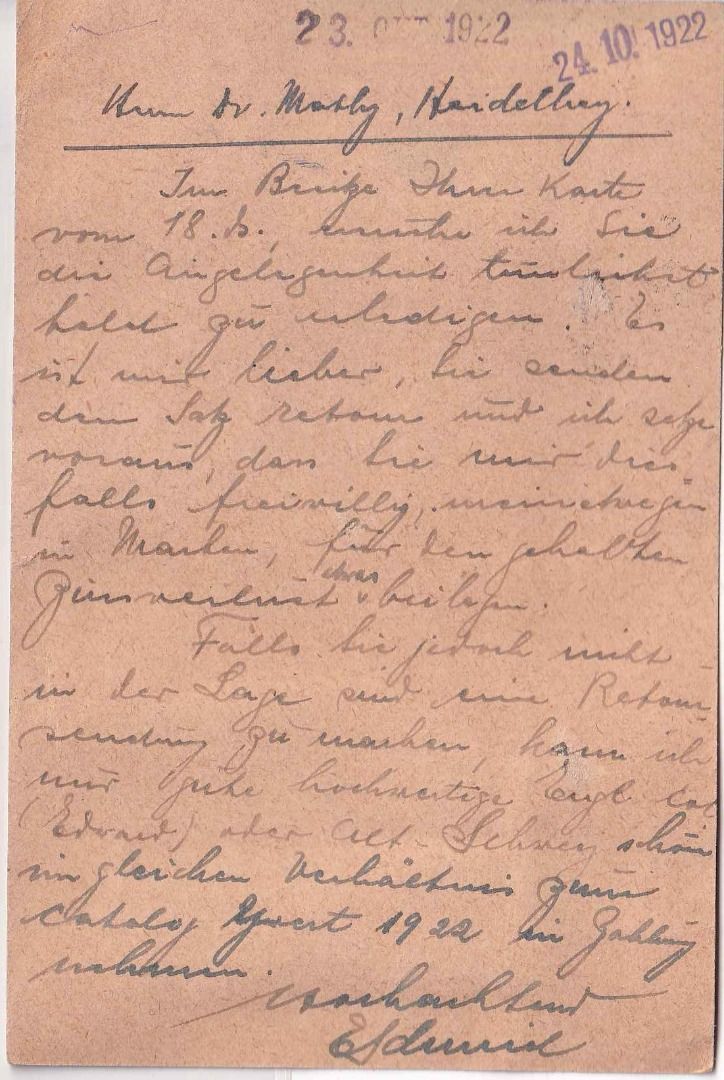 23. OKT 1922
24. 10. 1922
Herrn Dr. Mathy, Heidelberg.
Im Besitze Ihrer Karte
vom 18. ds., ersuche ich Sie
die Angelegenheit tunlichst
bald zu erledigen. Es
ist mir lieber, Sie senden
den Satz retour und ich setze
voraus, dass Sie mir dies
falls freiwillig, meinetwegen
in Marken, für den gehabten
Zinsverlust etwas beilegen.
Falls Sie jedoch nicht
in der Lage sind eine Retour-
sendung zu machen, kann ich
nur gute hochwertige Engl. Col
(Edward) oder Alt Schweiz schön
im gleichen Verhältnis zum
Catalog Yvert 1922 in Zahlung
nehmen.
Hochachtend